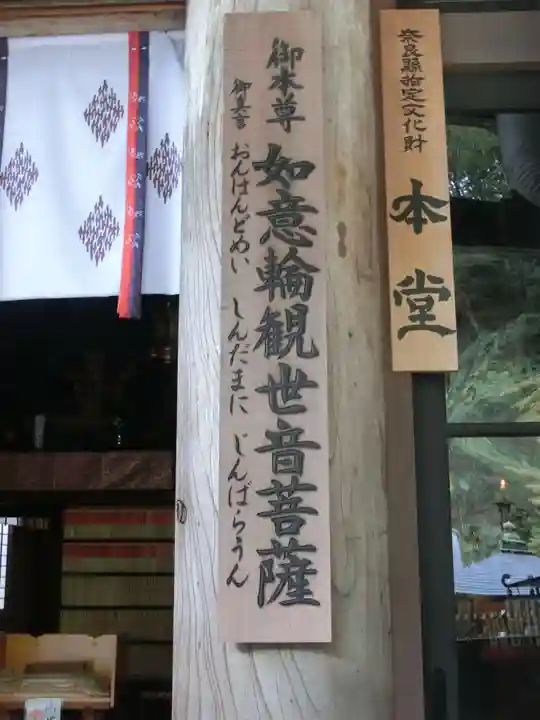 奈良縣指定文化財
本堂
御本尊
如意輪観世音菩薩
御真言
おんはんどめい しんだまに じんばらうん